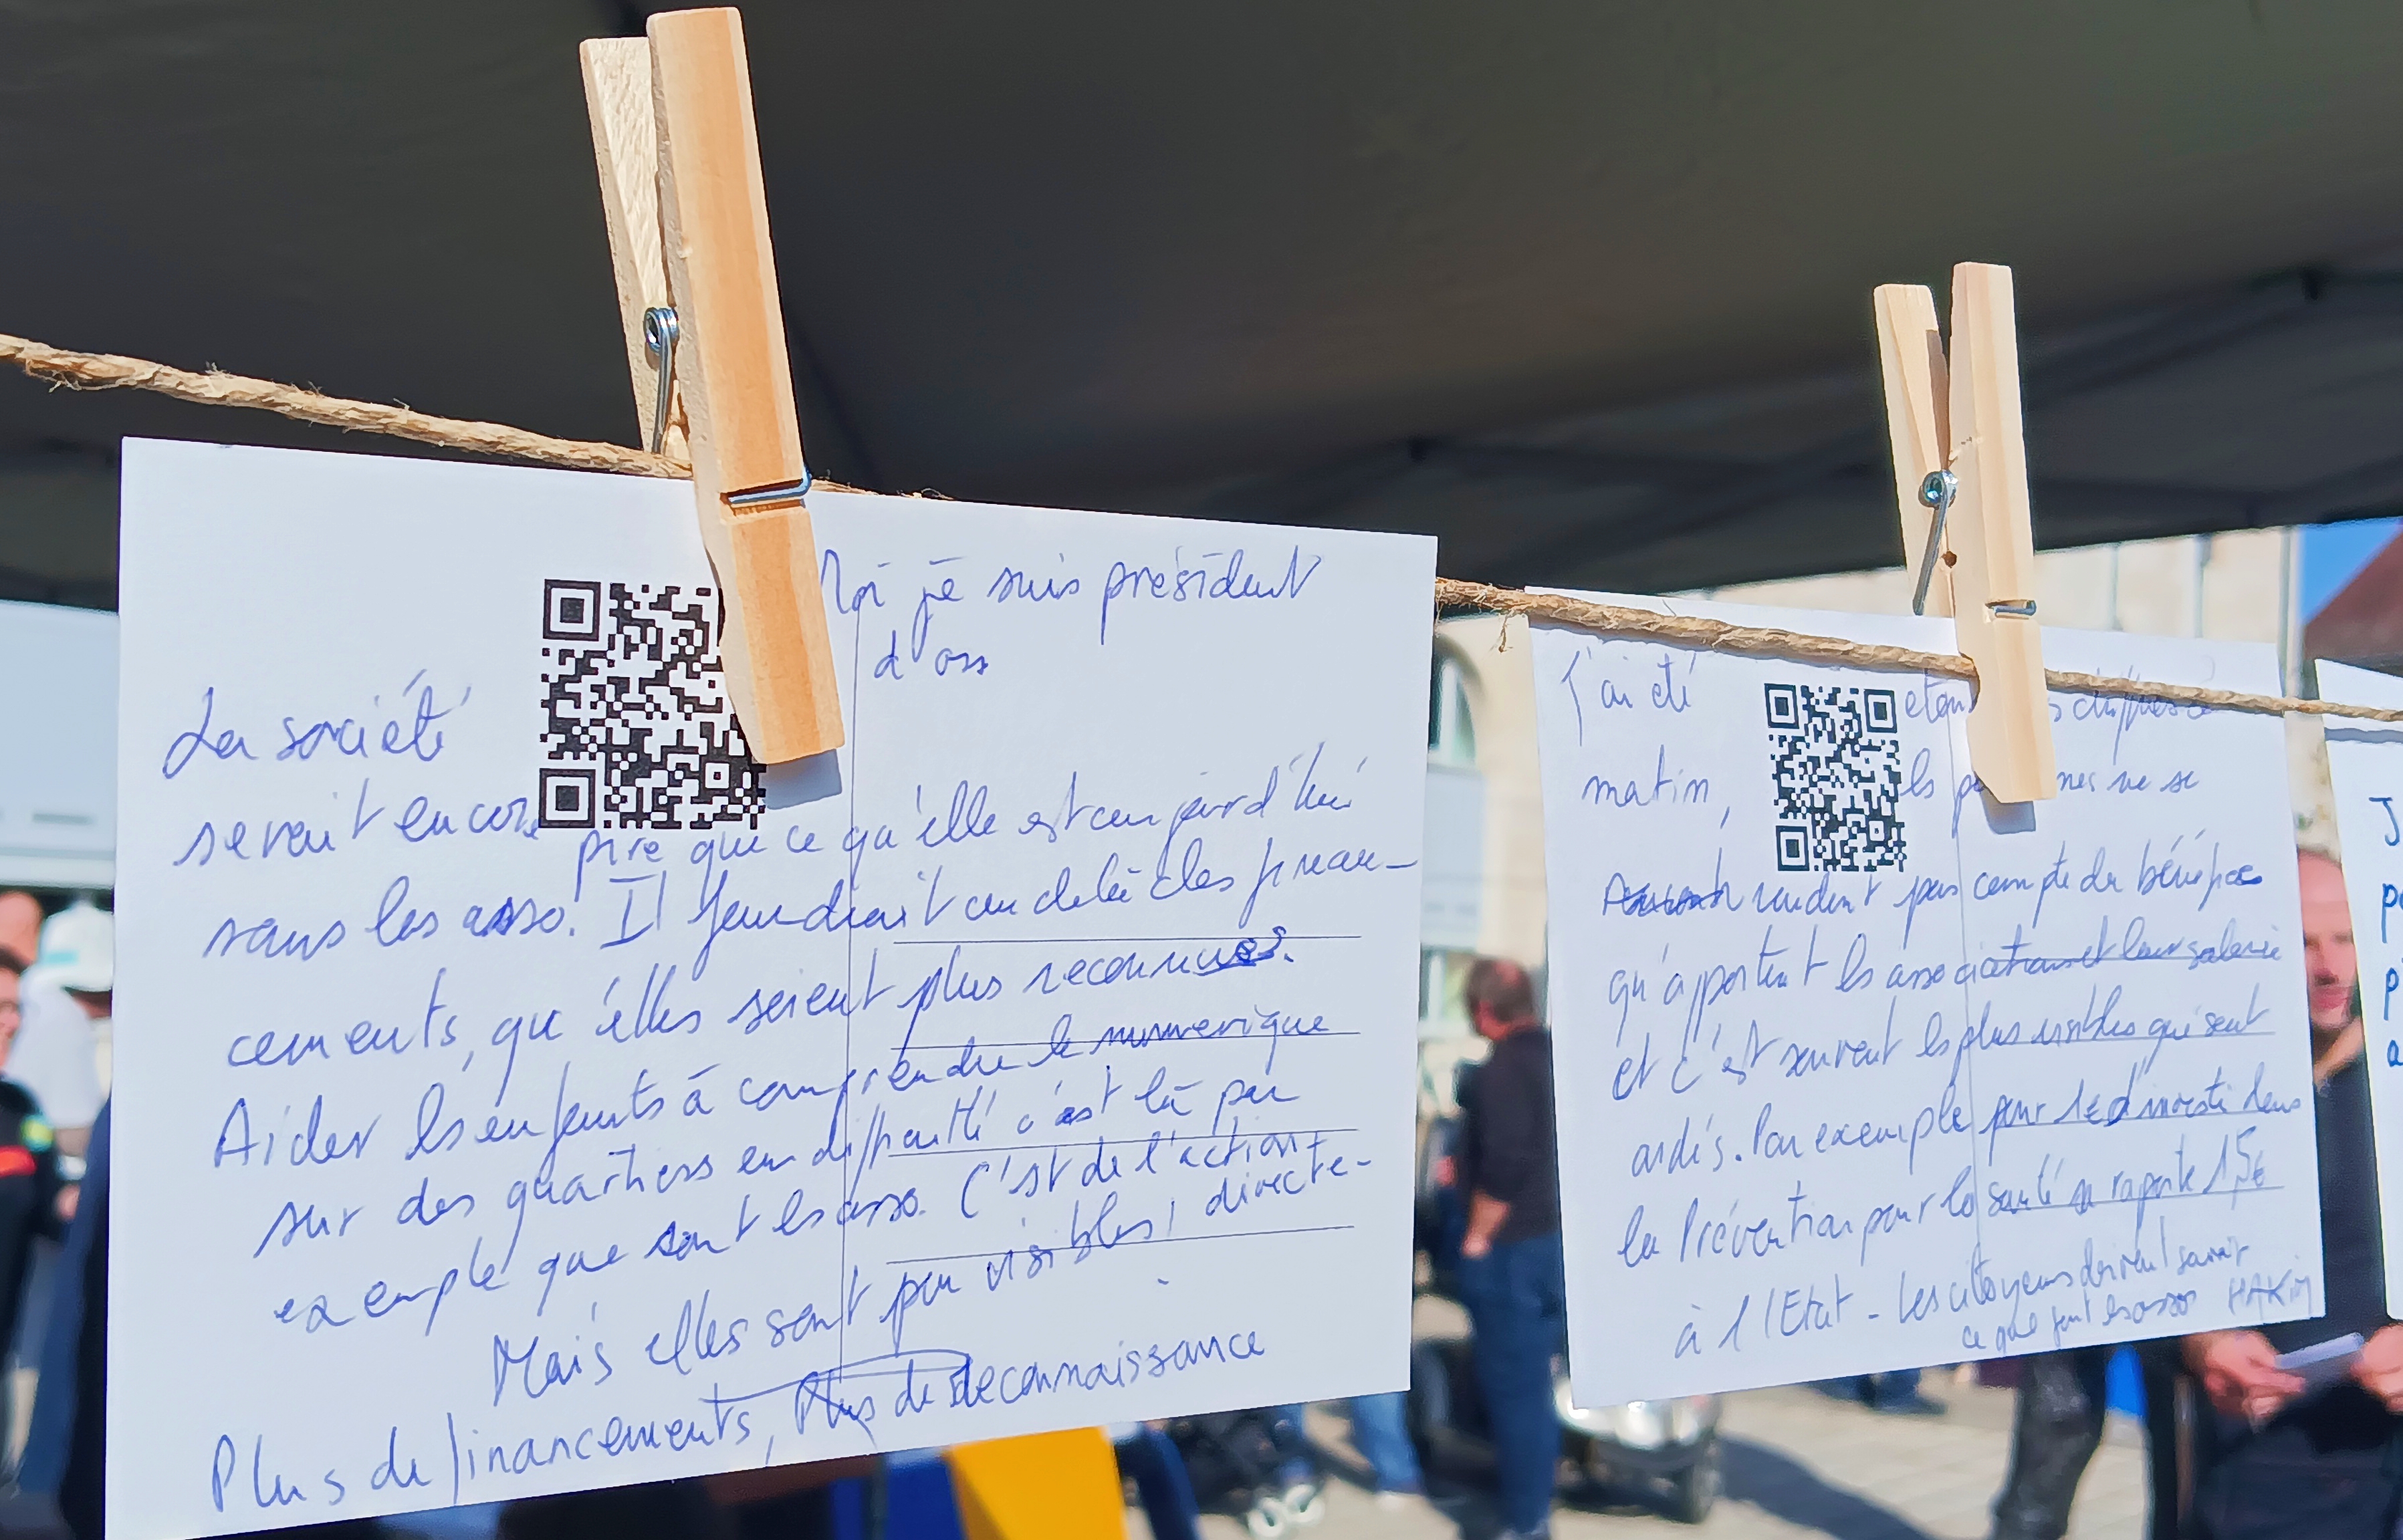 Moi je suis président
d'ass
La société
serait encore pire que ce qu'elle est aujourd'hui
sans les asso. Il faudrait au delà des finan-
cements, qu'elles soient plus reconnues.
Aider les enfants à comprendre le numerique
sur des quartiers en difficulté c'est là par
exemple que sont les asso. C'est de l'action
Mais elles sont peu visibles! directe-
Plus de financements, Plus de reconnaissance
J'ai été
matin, ne se
rendent pas compte du bénéfice
qu'apportent les associations et leur salarié
et c'est souvent les plus visibles qui sont
aidés. Par exemple pour 1€ d'investi dans
la Prévention pour la santé ça raporte 15€
à l'Etat - Les citoyens doivent savoir
ce que font les assos HAKIM
J
p
p
a